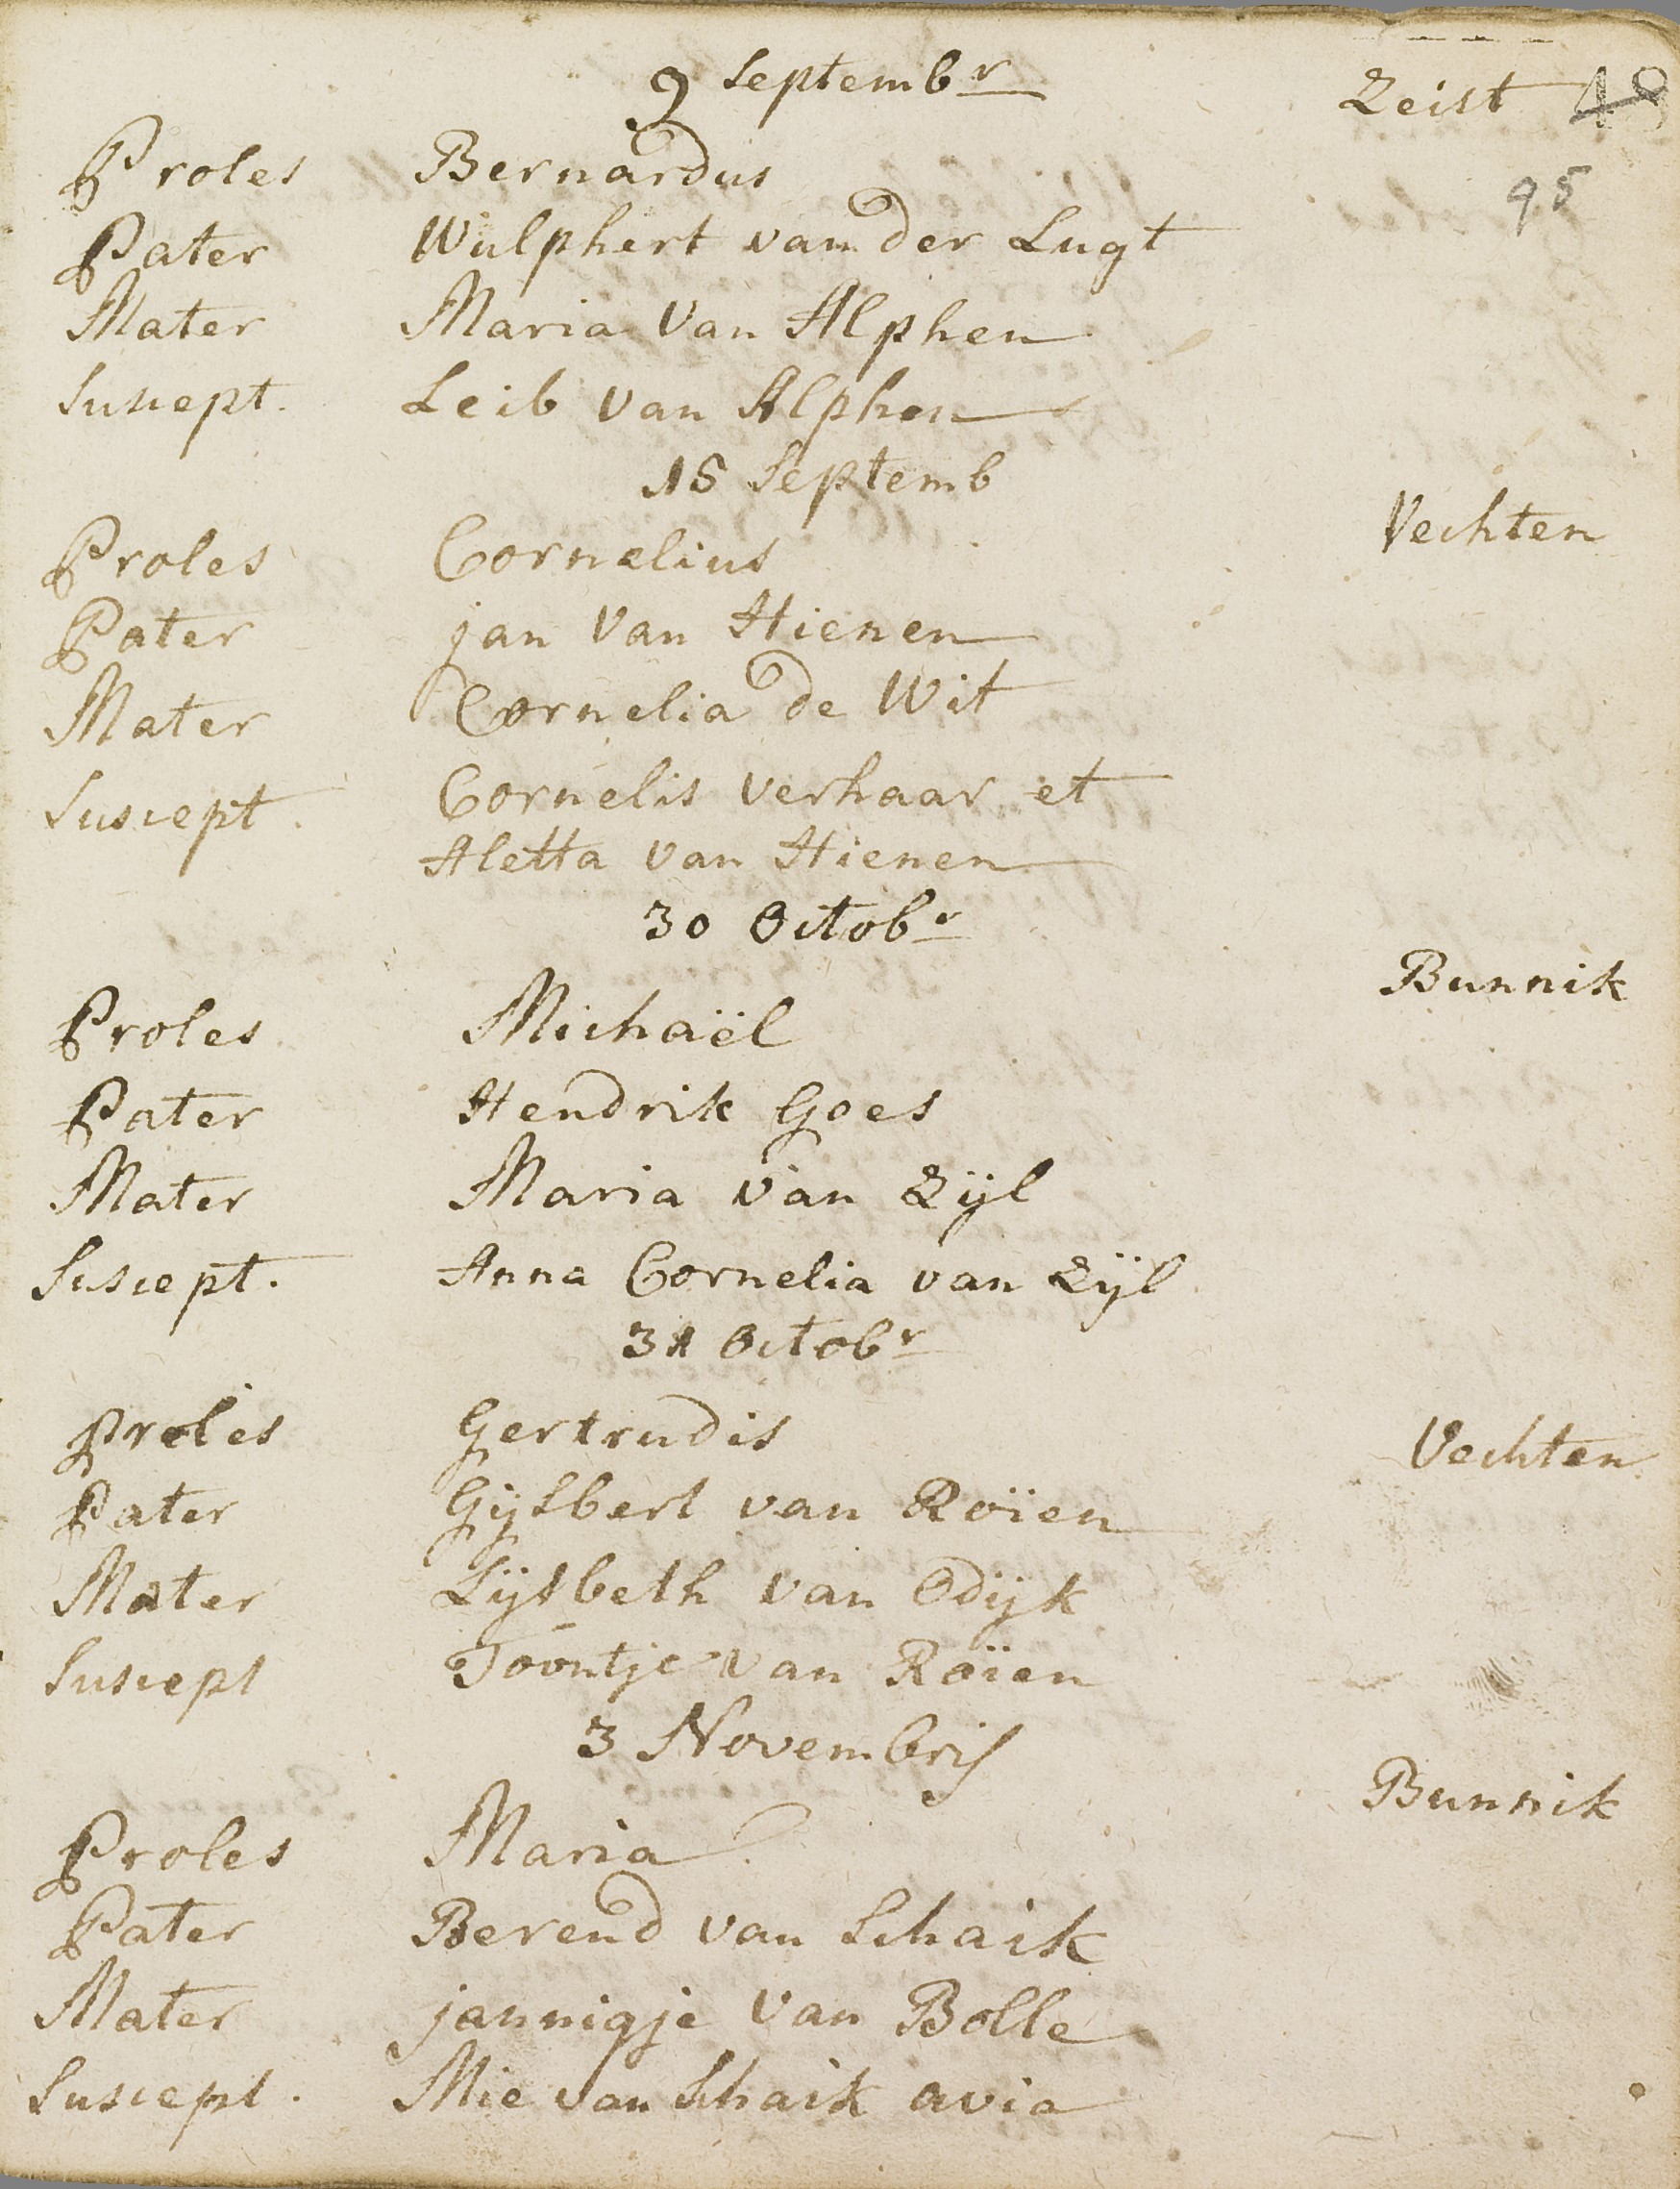 9 Septembr Zeist 48
95
Proles Bernardus
Pater Wulphert van der Lugt
Mater Maria Van Alphen
Suscept. Leib van Alphen
15 Septemb
Vechten
Proles Cornelius
Pater jan Van Hienen
Mater Cornelia de Wit
Suscept. Cornelis verhaar et
Aletta van Hienen
30 Octobr
Bunnik
Proles Michaël
Pater Hendrik Goes
Mater Maria van Zijl
Suscept. Anna Cornelia van Zijl
31 Octobr
Proles Gertrudis Vechten
Pater Gijsbert van Roïen
Mater Lijsbeth van Odijk
Suscept Toontje van Roïen
3 Novembris
Bunnik
Proles Maria
Pater Berend van Schaik
Mater jannigje Van Bolle
Suscept. Mie van Schaik avia